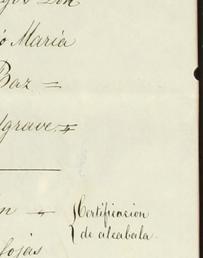 María
Baz =
lgrave =
Certificacion
de alcabala.
lojas